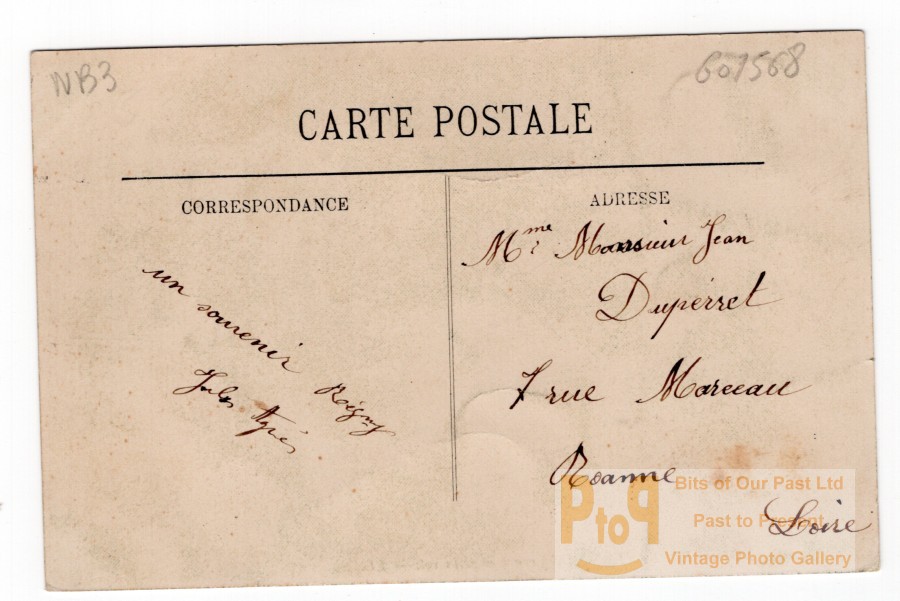 NB3
601568
CARTE POSTALE
CORRESPONDANCE
un souvenir
Jules
ADRESSE
Mme Monsieur Jean
Duperret
7 rue Marceau
Roanne
Loire
PtoP
Bits of Our Past Ltd
Past to Present
Vintage Photo Gallery